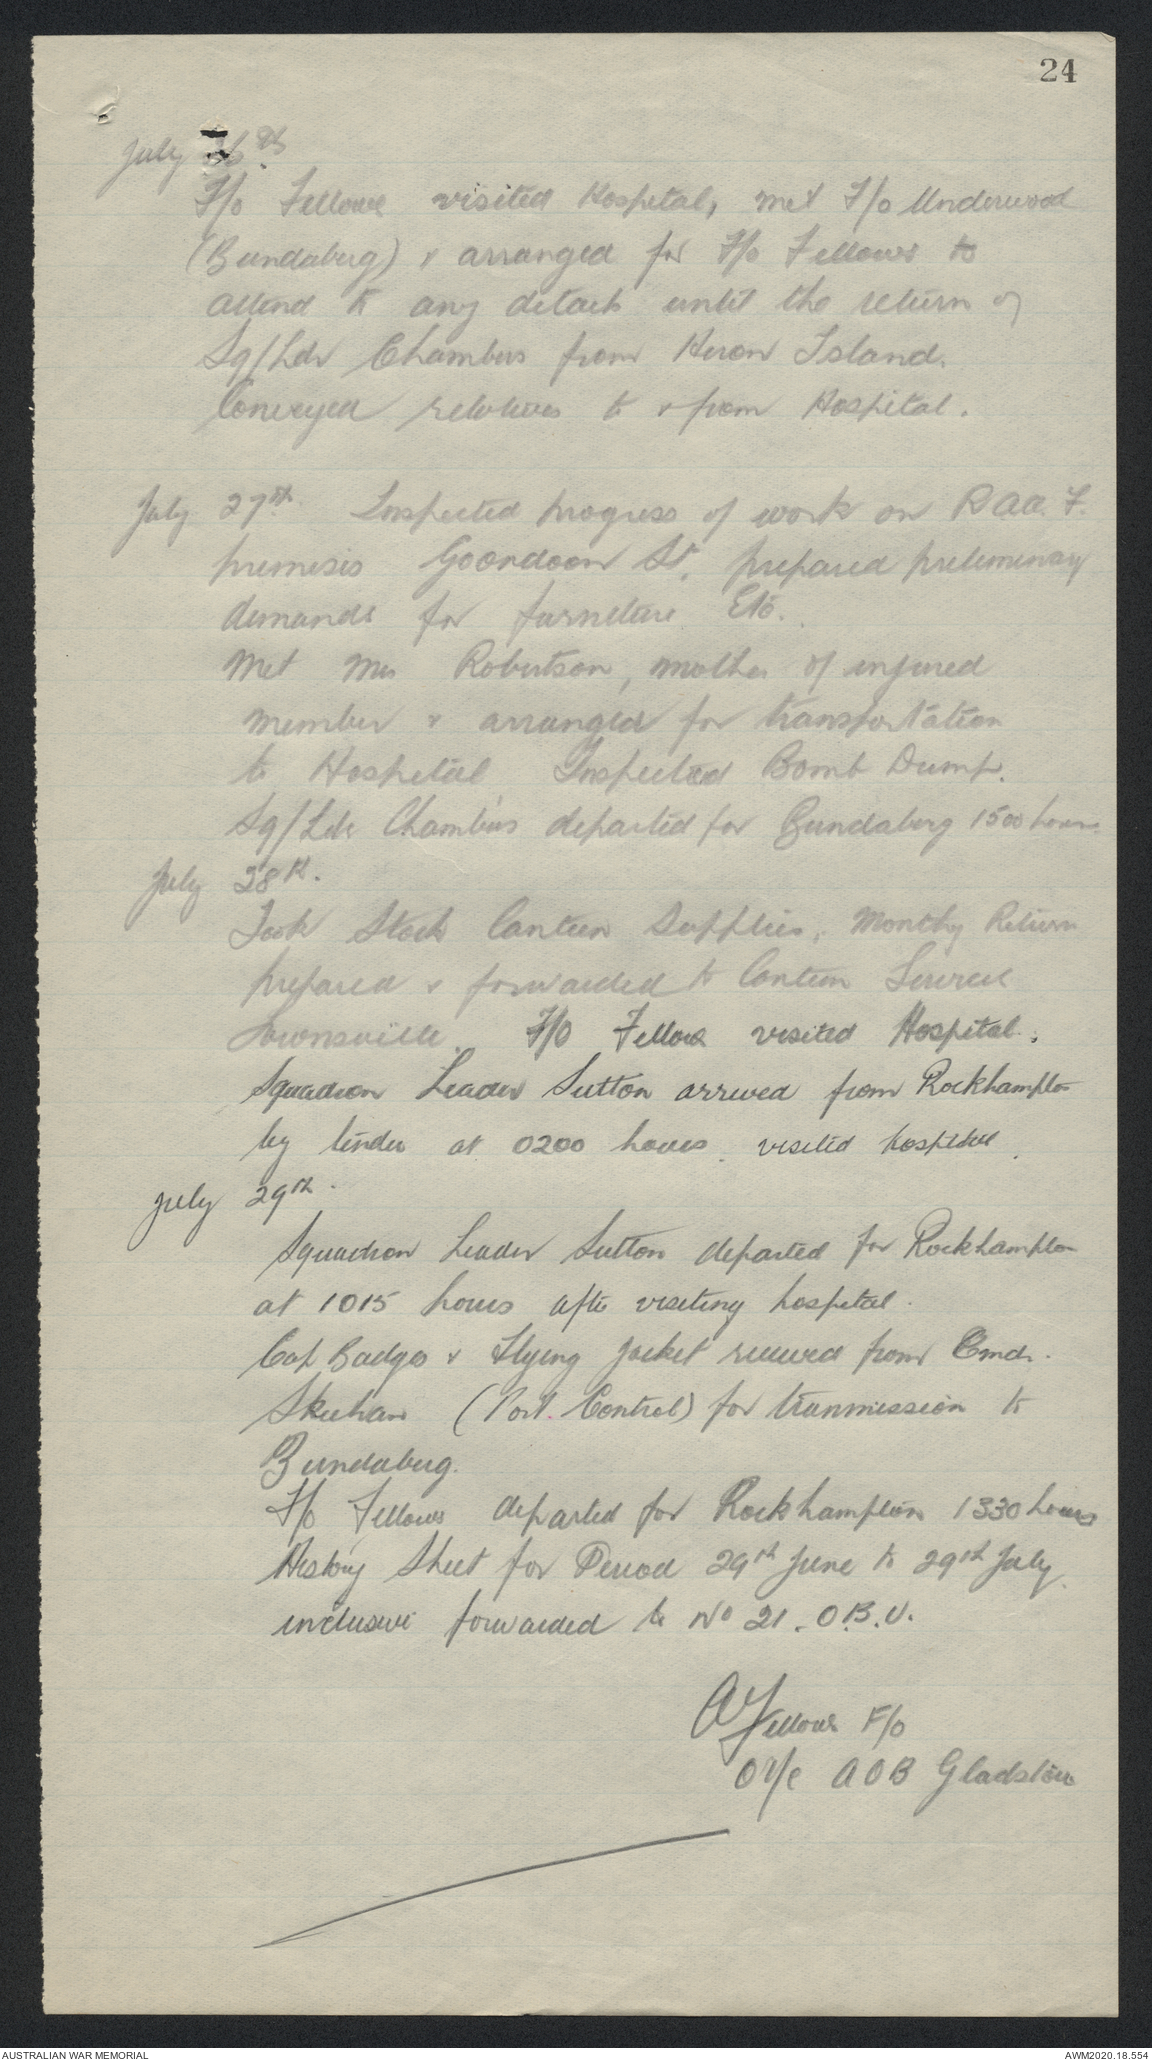 24
July 26th
F/o Fellows visited Hospital, met F/o Underwood
(Bundaberg) & arranged for F/o Fellows to
attend to any details until the return of
Sq/Ldr Chambers from Heron Island.
Conveyed relatives to & from Hospital.
July 27th. Inspected progress of work on RAA.F.
premesis Goondoon St. prepared preliminary
demands for furniture Etc.
Met Mrs Robertson, mother of injured
member & arranged for transportation
to Hospital Inspected Bomb Dump.
Sq/Ldr Chambers departed for Bundaberg 1500 hours
July 28th.
Took Stock Canteen Supplies. Monthy Return
prepared & forwarded to Canteen Service
Townsville. F/O Fellows visited Hospital.
Squadron Leader Sutton arrived from Rockhampton
by tender at 0200 hours. visited hospital.
July 29th.
Squadron Leader Sutton departed for Rockhampton
at 1015 hours after visiting hospital.
Cap Badge & Flying Jacket received from Cmdr.
Skeehan (Port Control) for tranmission to
Bundaberg.
F/o Fellows departed for Rockhampton 1330 hours
History Sheet for Period 29th June to 29th July
inclusive forwarded to No 21. O.B.U.
Fellows F/o
O i/c AOB Gladstone
AUSTRALIAN WAR MEMORIAL
AWM2020.18.554